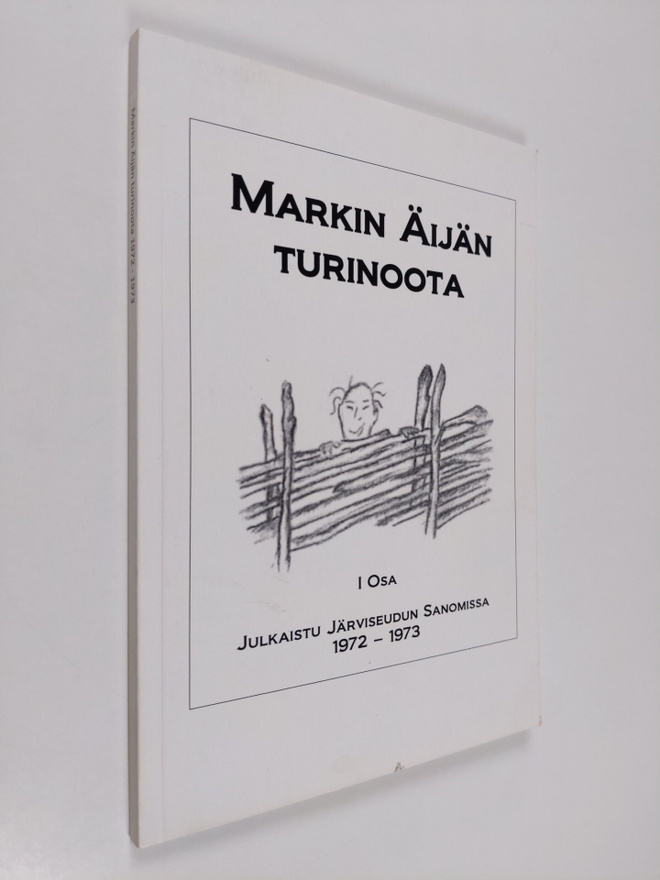 Markin Äijän turinoota 1972 - 1973
MARKIN ÄIJÄN
TURINOOTA
I OSA
JULKAISTU JÄRVISEUDUN SANOMISSA
1972 – 1973